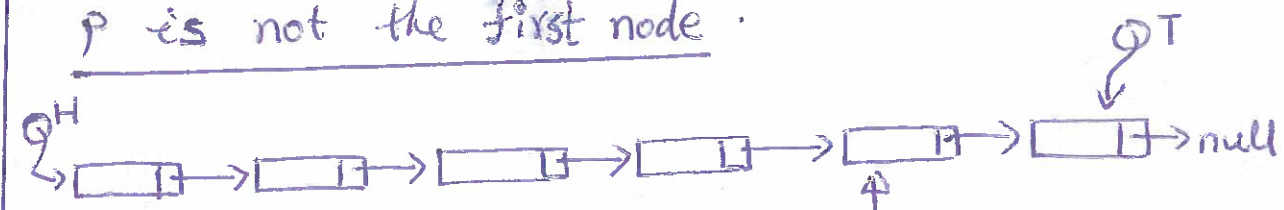 P is not the first node.
T
H
null